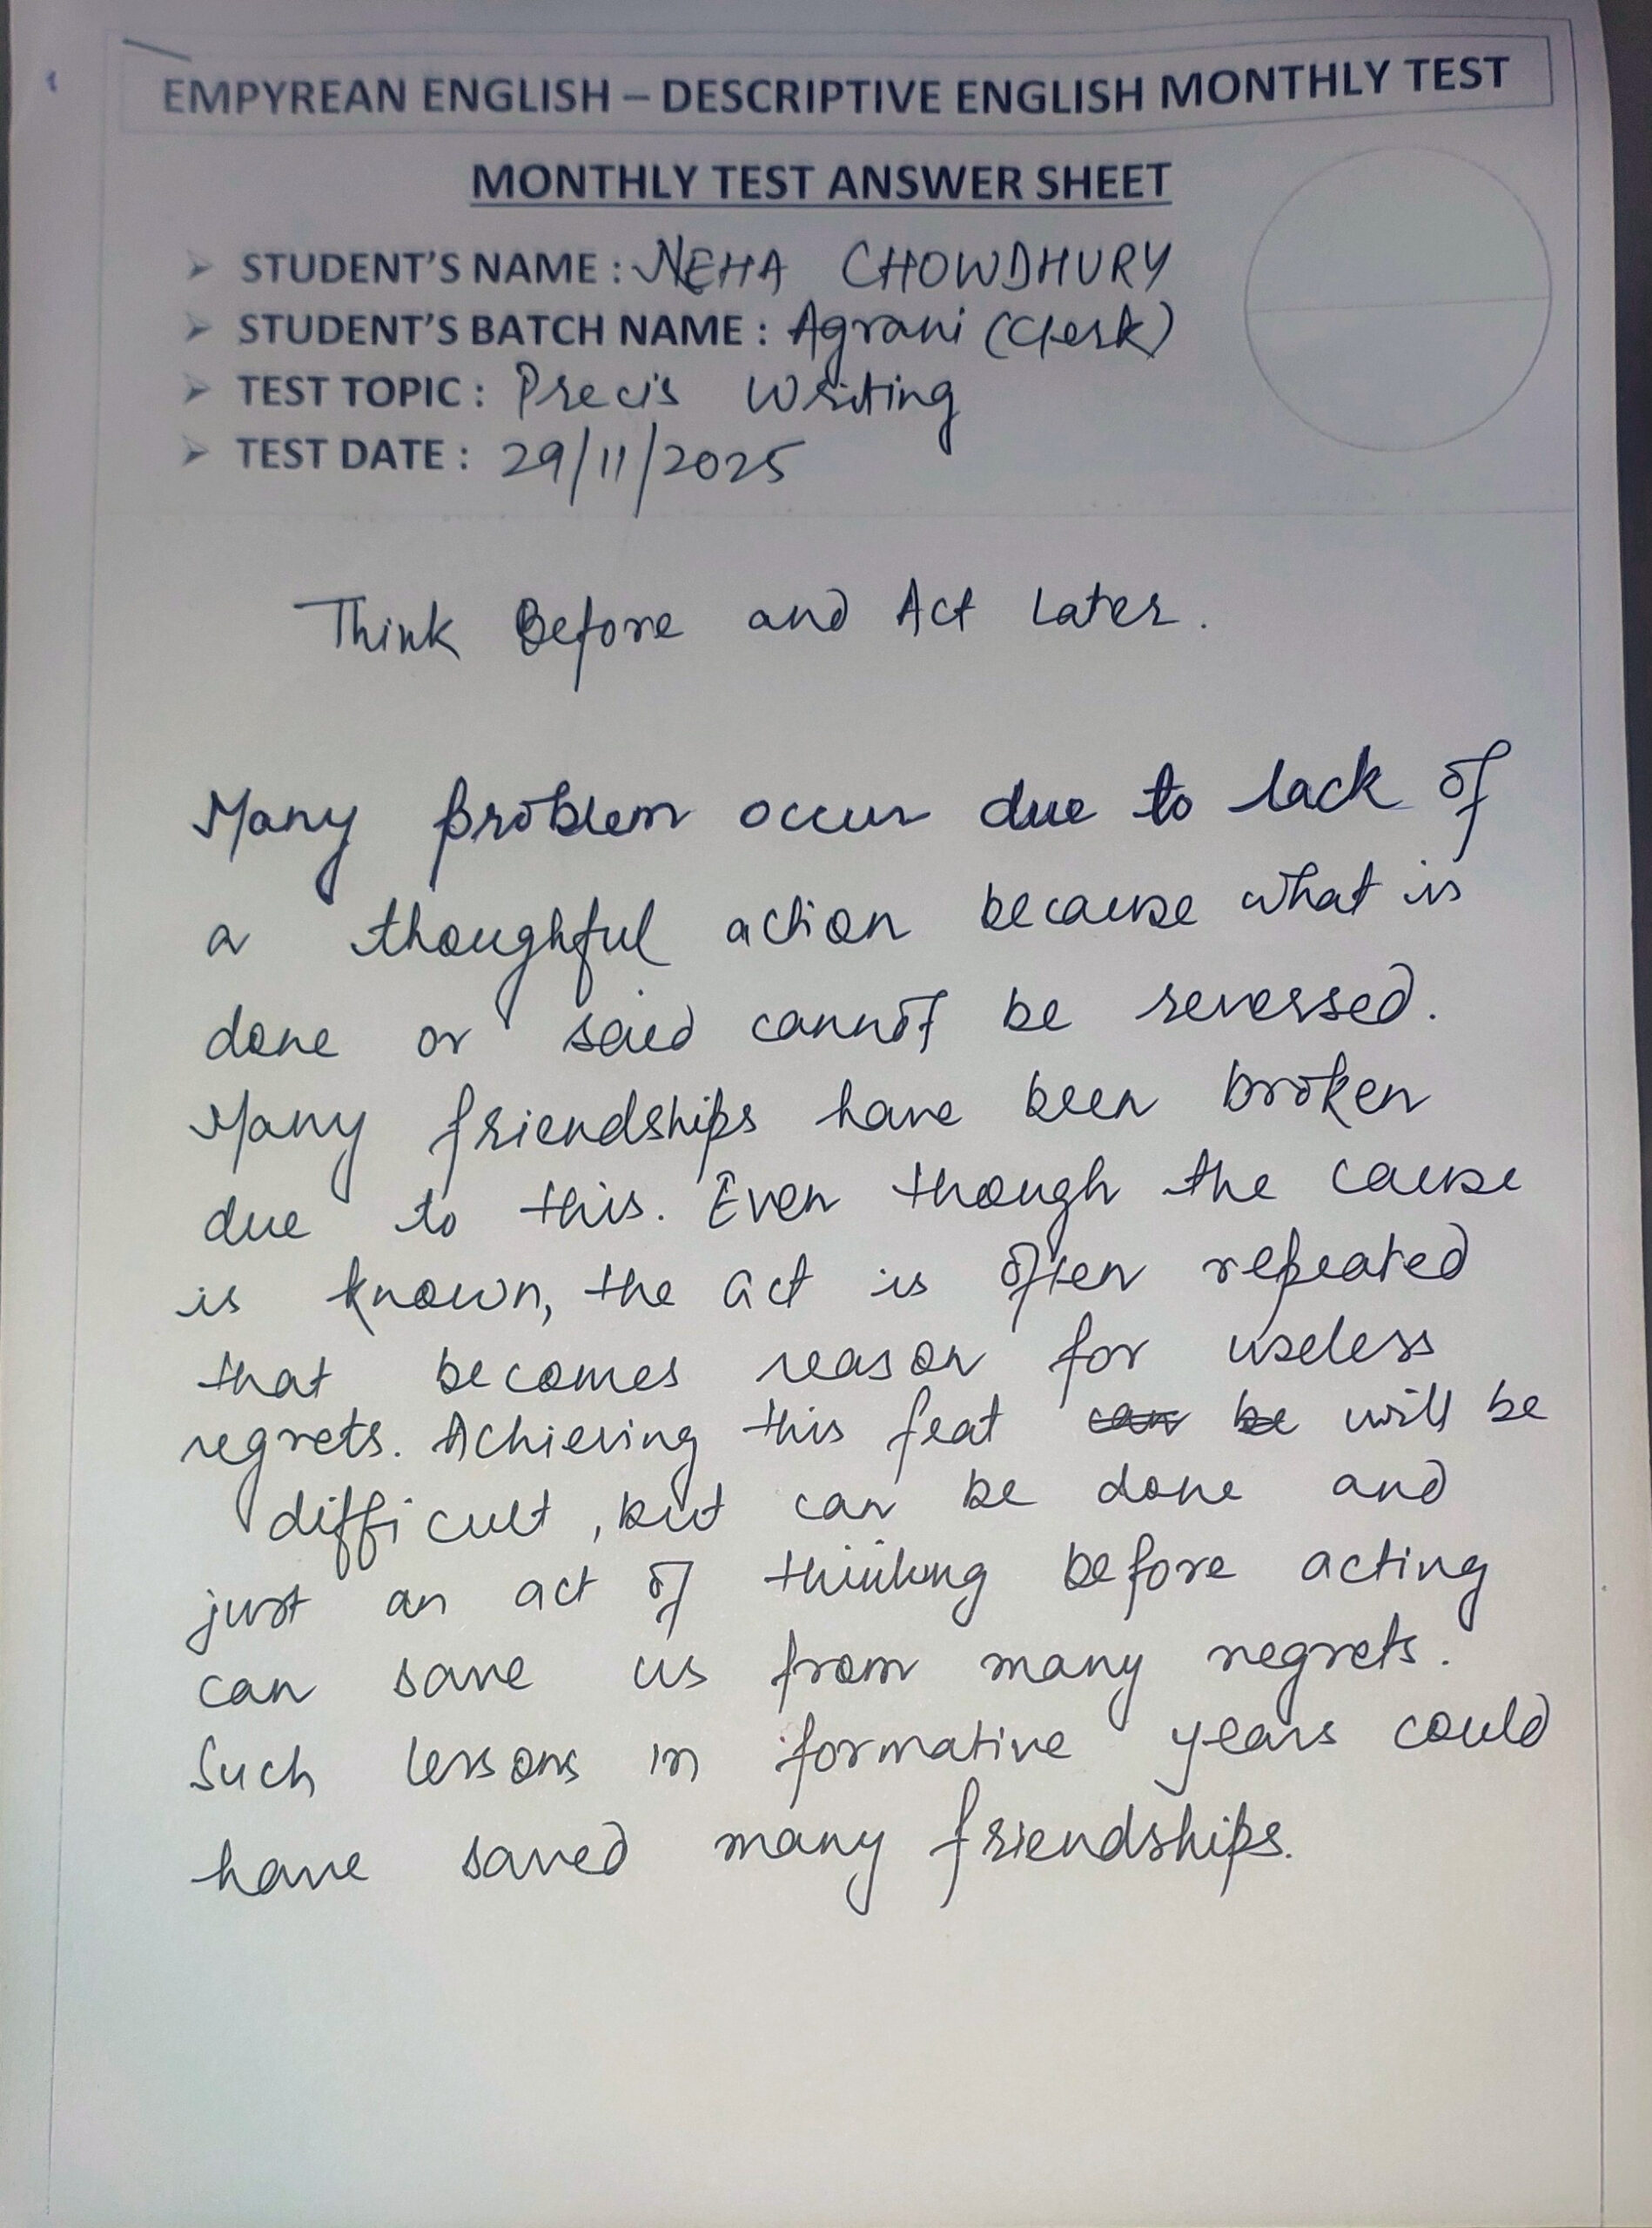 EMPYREAN ENGLISH – DESCRIPTIVE ENGLISH MONTHLY TEST
MONTHLY TEST ANSWER SHEET
➢ STUDENT'S NAME : NEHA CHOWDHURY
➢ STUDENT'S BATCH NAME : Agrani (Clerk)
➢ TEST TOPIC : Precis Writing
➢ TEST DATE : 29/11/2025
Think Before and Act Later.
Many problem occur due to lack of
a thoughtful action because what is
done or said cannot be reversed.
Many friendships have been broken
due to this. Even though the cause
is known, the act is often repeated
that becomes reason for useless
regrets. Achieving this feat ~~can be~~ will be
difficult, but can be done and
just an act of thinking before acting
can save us from many regrets.
Such lessons in formative years could
have saved many friendships.